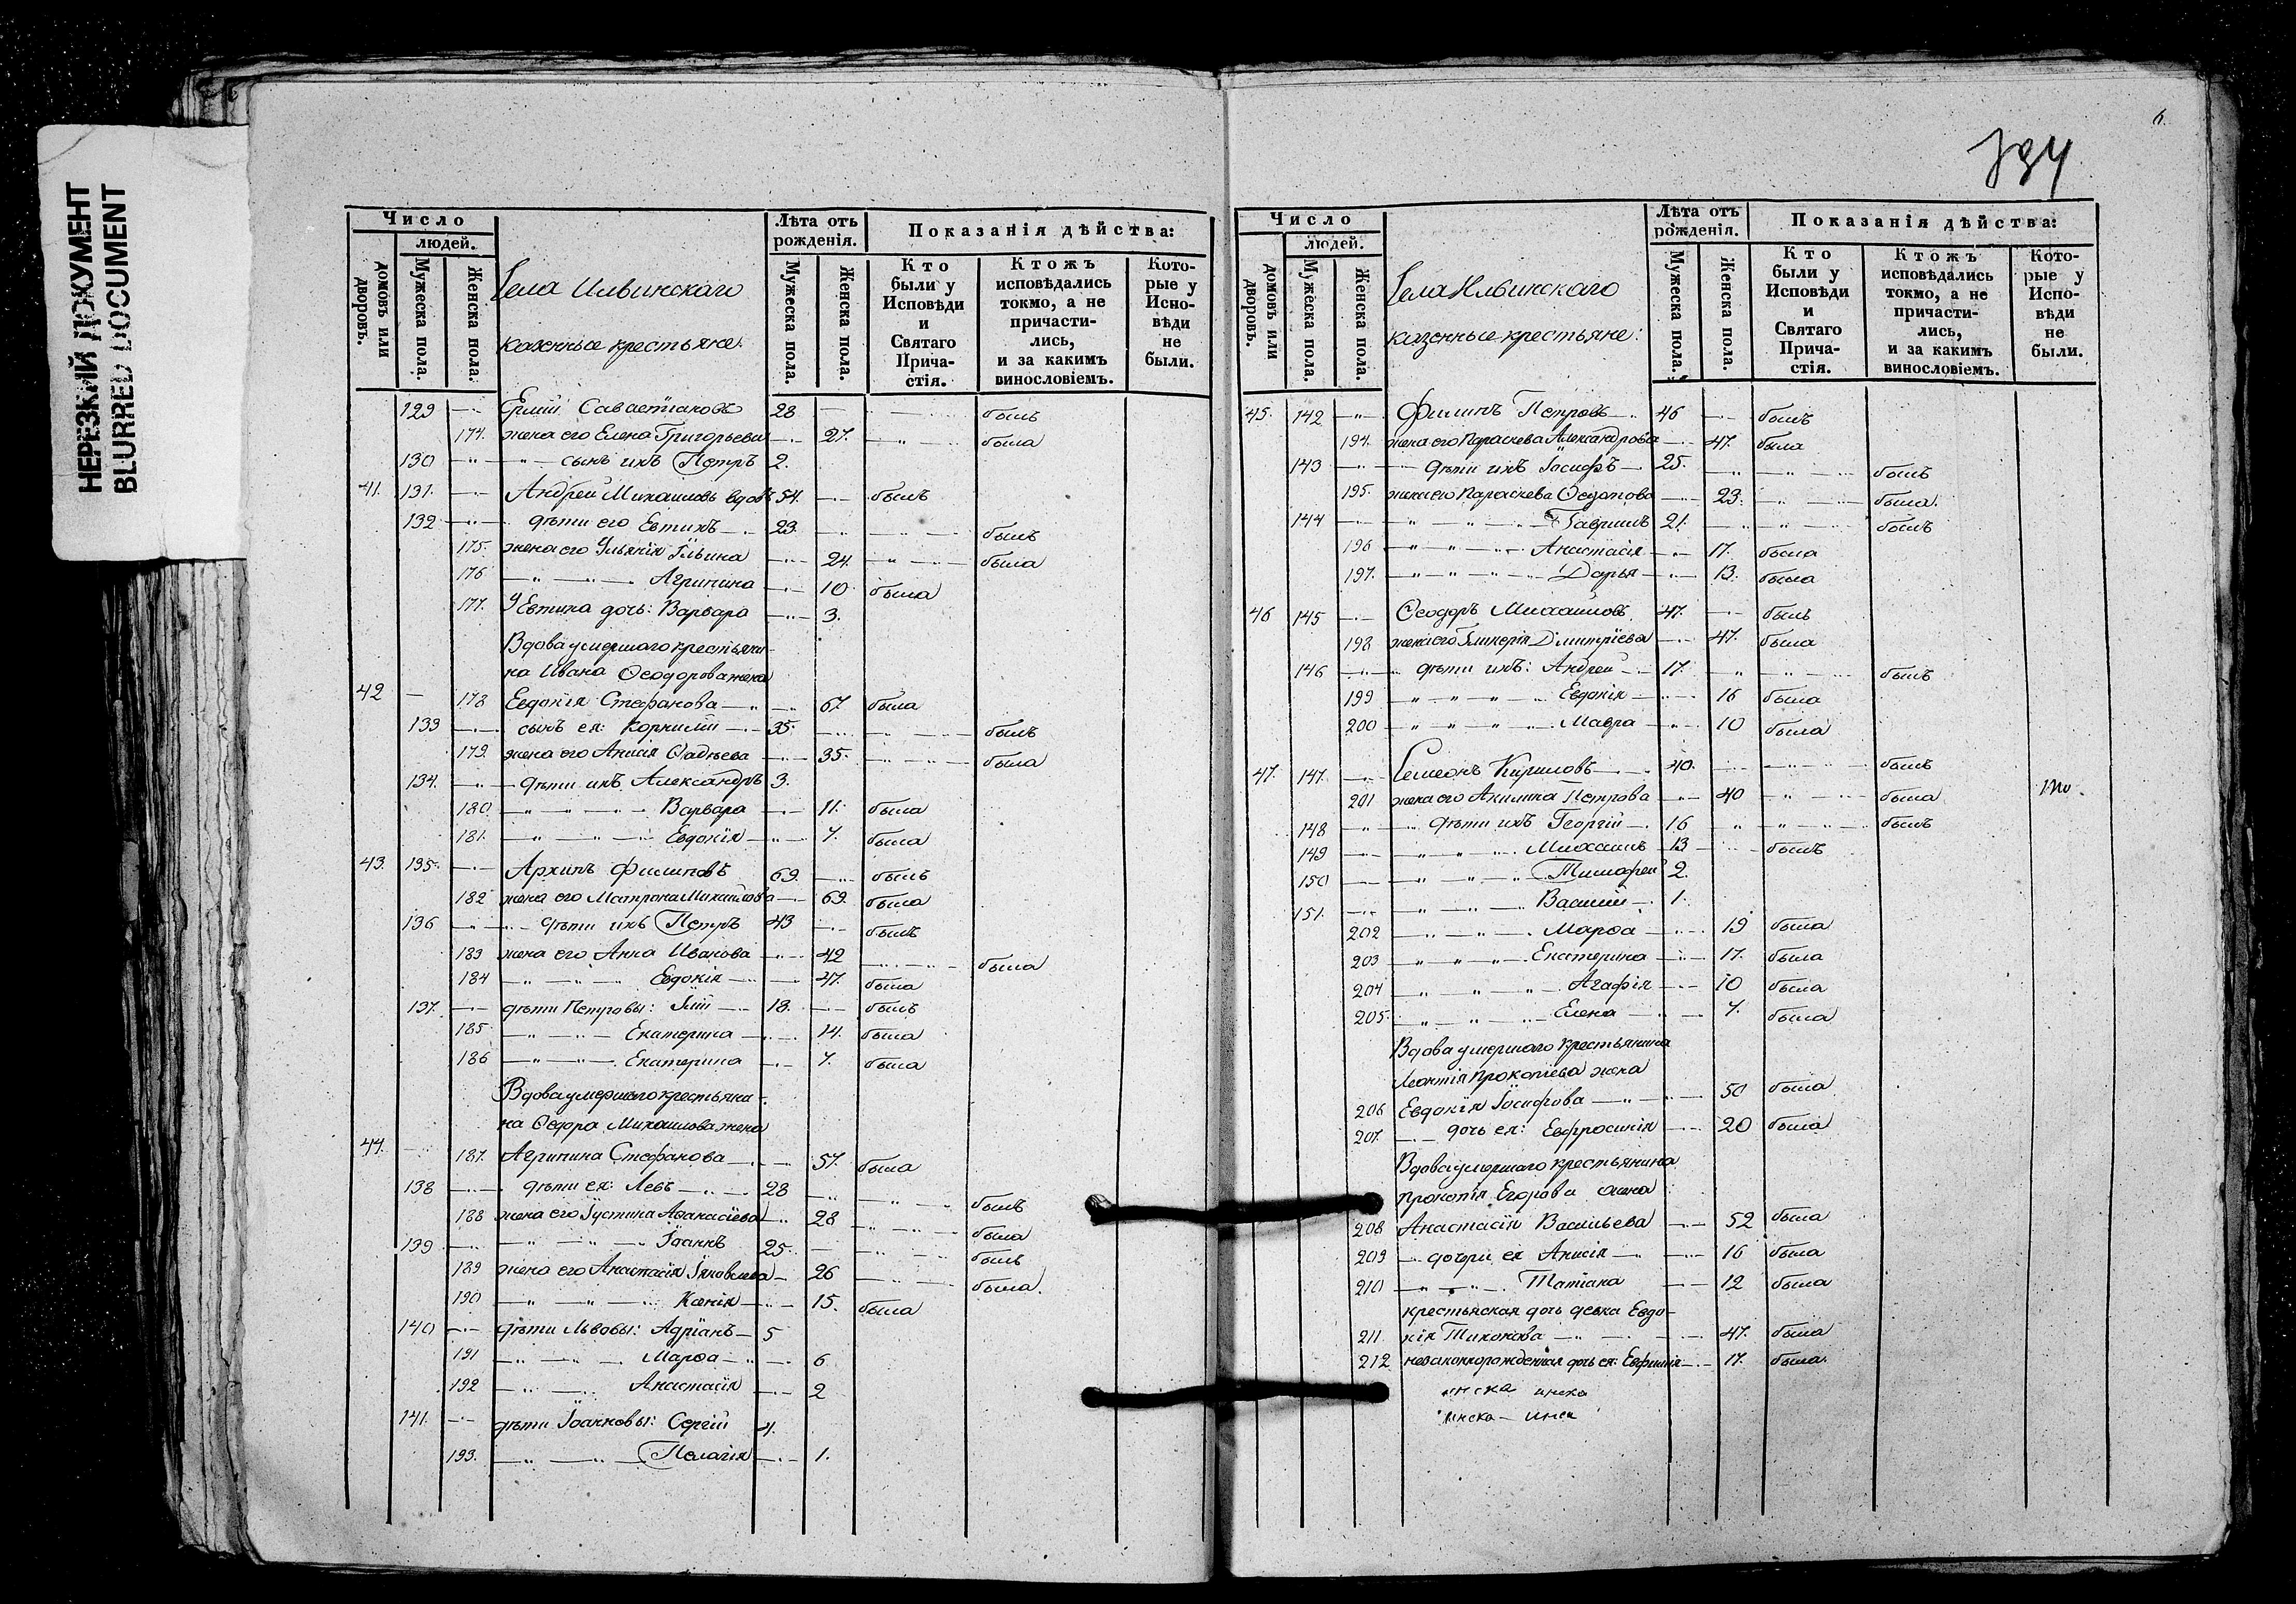 НЕРЕЗКИЙ ДОКУМЕНТ
BLURRED DOCUMENT
Число
людей.
домовъ или дворовъ.
Мужеска пола.
Женска пола.
Села Ильинскаго
казенные крестьяне:
Лѣта отъ рожденія.
Мужеска пола.
Женска пола.
Показанія дѣйства:
Кто были у Исповѣди и Святаго Прича-стія.
Ктожъ исповѣдались токмо, а не причасти-лись, и за какимъ винословіемъ.
Кото-рые у Испо-вѣди не были.
129 Ермій Савватіановъ 28 былъ
174. жена его Елена Григорьева 27. была
130 сынъ ихъ Петръ 2.
41. 131. Андрей Михаиловъ вдовъ 54. былъ
132 дѣти его Евтихъ 23. былъ
175. жена его Ульянія Ильина 24. была
176 Агрипина 10 была
177. У Евтиха дочь: Варвара 3.
Вдова умершаго крестьяни-
на Ивана Ѳеодорова жена
42 178 Евдокія Стефанова 67 была
133 сынъ ея: Корнилій 35. былъ
179. жена его Анисія Ѳадѣева 35. была
134. дѣти ихъ Александръ 3.
180 Варвара 11. была
181. Евдокія 7. была
43. 135. Архипъ Филиповъ 69. былъ
182 жена его Матрона Михаилова 69. была
136 дѣти ихъ Петръ 43 былъ
183 жена его Анна Иванова 42 была
184 Евдокія 47. была
137. дѣти Петровы: Илій 18. былъ
185 Екатерина 14. была
186 Екатерина 7. была
Вдова умершаго крестьяни-
на Ѳедора Михаилова жена
44. 187. Агрипина Стефанова 57. была
138 дѣти ея: Левъ 28 былъ
188 жена его Іустина Аѳанасіева 28 была
139 Іоаннъ 25. былъ
189 жена его Анастасія Іяковлева 26 была.
190 Ксенія 15. была
140 дѣти Львовы: Адріанъ 5
191 Марѳа 6
192 Анастасія 2
141. дѣти Іоанновы: Сергій 4.
193. Пелагія 1.
6.
794
Число
людей.
домовъ или дворовъ.
Мужеска пола.
Женска пола.
Села Ильинскаго
казенные крестьяне:
Лѣта отъ рожденія.
Мужеска пола.
Женска пола.
Показанія дѣйства:
Кто были у Исповѣди и Святаго Прича-стія.
Ктожъ исповѣдались токмо, а не причасти-лись, и за какимъ винословіемъ.
Кото-рые у Испо-вѣди не были.
45. 142 Филипъ Петровъ 46 былъ
194. жена его Параскева Александрова 47. была
143 дѣти ихъ Іосифъ 25. былъ
195. жена его Параскева Ѳедотова 23. была.
144 Гавриилъ 21. былъ
196 Анастасія 17. была
197. Дарья 13. была
46 145 Ѳеодоръ Михаиловъ 47. былъ
198 жена его Гликерія Димитріева 47. была
146 дѣти ихъ: Андрей 17. былъ
199 Евдокія 16 была
200 Мавра 10 была
47. 147. Симеонъ Кириловъ 40. былъ
201 жена его Акилина Петрова 40 была
148 дѣти ихъ Георгій 16 былъ
149 Михаилъ 13 былъ
150 Тимофей 2.
151. Василій 1.
202 Марѳа 19 была
203 Екатерина 17. была
204 Агафія 10 была
205. Елена 7. была
Вдова умершаго крестьянина
Леонтія Прокопіева жена
206 Евдокія Іосифова 50 была
207. дочь ея: Евфросинія 20 была
Вдова умершаго крестьянина
Прокопія Егорова жена
208 Анастасія Васильева 52 была
209 дочери ея Анисія 16 была
210 Татіана 12 была
крестьянская дочь девка Евдо-
211. кія Тихонова 47. была
212 незаконнорожденная дочь ея: Евфимія 17. была.